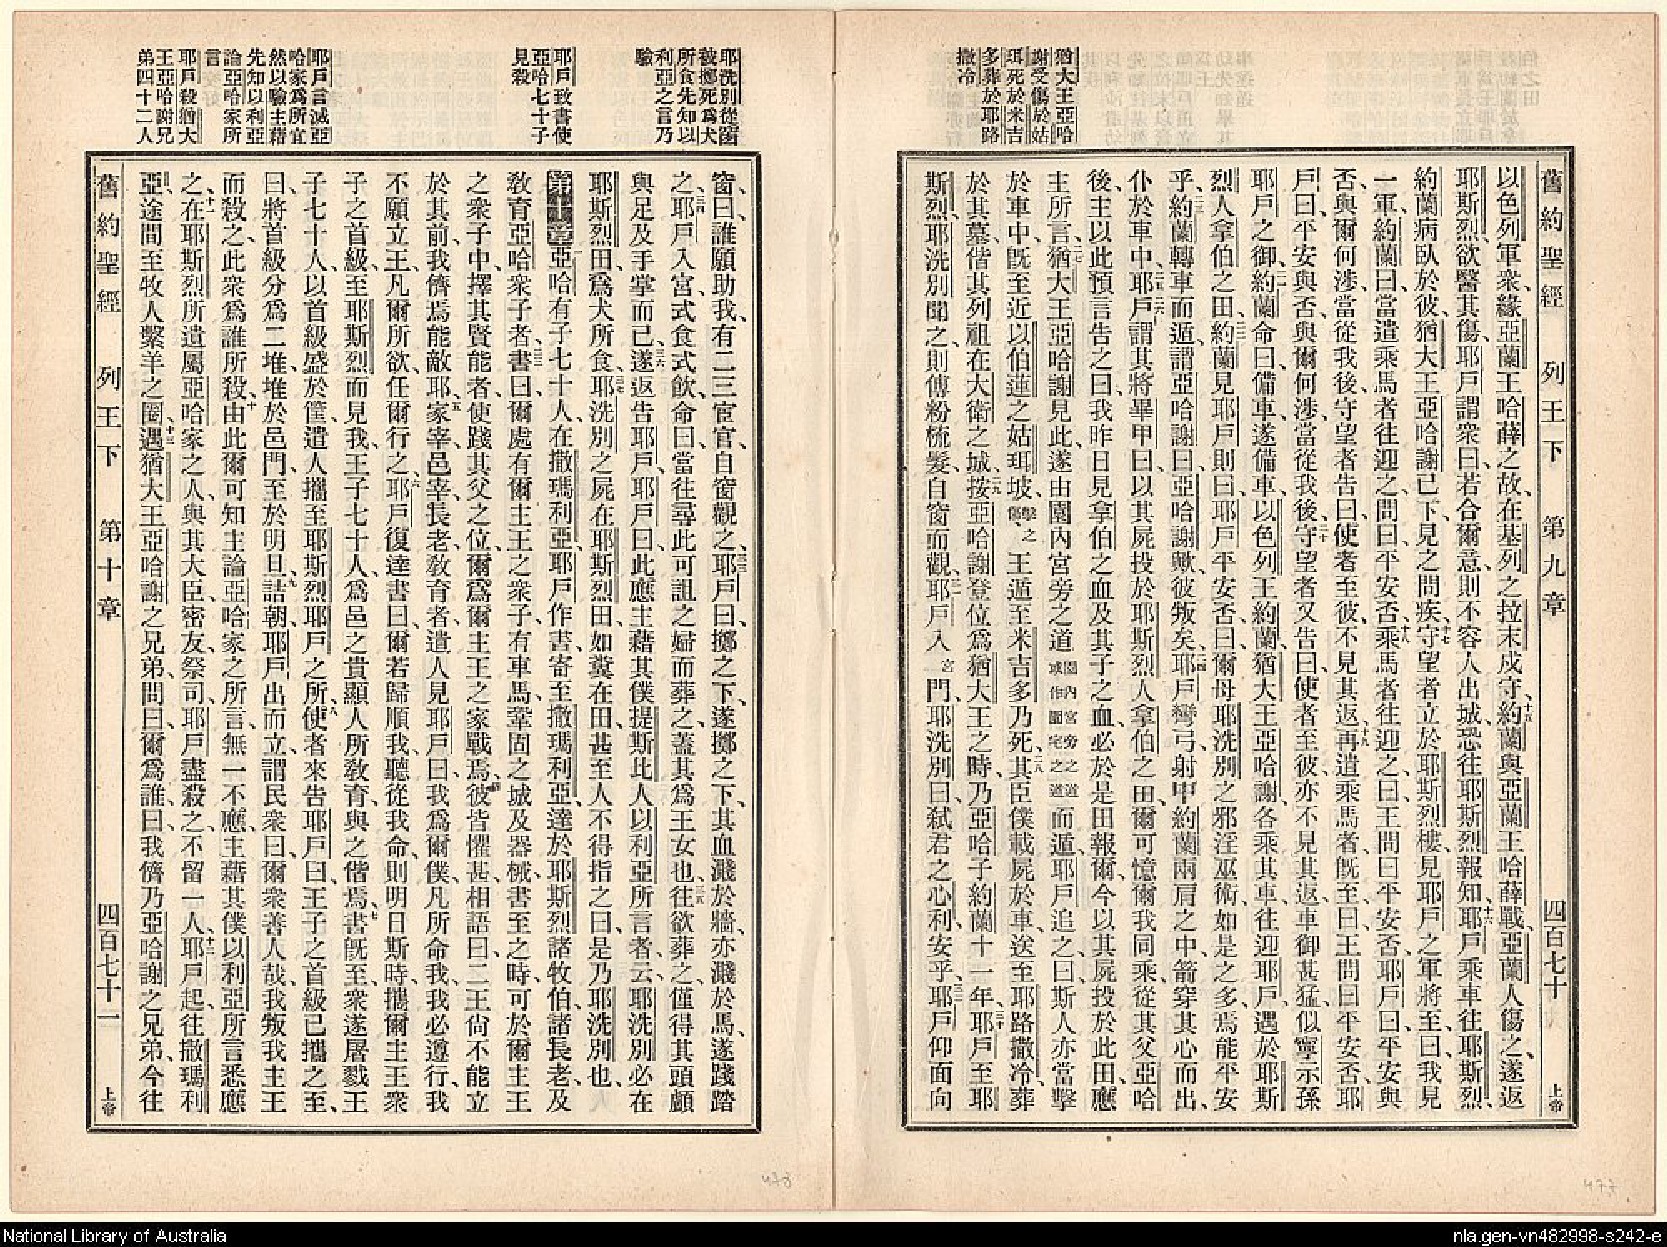 猶大王亞哈
謝受傷於姑
珥死於米吉
多葬於耶路
撒冷
舊約聖經 列王下 第九章 四百七十 上帝
以色列軍衆、緣亞蘭王哈薛之故、在基列之拉末戍守、十五約蘭與亞蘭王哈薛戰、亞蘭人傷之、遂返
耶斯烈、欲醫其傷、耶戶謂衆曰、若合爾意、則不容人出城、恐往耶斯烈報知、十六耶戶乘車往耶斯烈、
約蘭病臥於彼、猶大王亞哈謝已下見之問疾、十七守望者立於耶斯烈樓、見耶戶之軍將至、曰、我見
一軍、約蘭曰、當遣乘馬者往迎之、問曰、平安否、十八乘馬者往迎之、曰、王問曰、平安否、耶戶曰、平安與
否、與爾何涉、當從我後、守望者告曰、使者至彼、不見其返、十九再遣乘馬者、既至、曰、王問曰、平安否、耶
戶曰、平安與否、與爾何涉、當從我後、二十守望者又告曰、使者至彼、亦不見其返、車御甚猛、似寧示孫
耶戶之御、二一約蘭命曰、備車、遂備車、以色列王約蘭、猶大王亞哈謝、各乘其車、往迎耶戶、遇於耶斯
烈人拿伯之田、二二約蘭見耶戶則曰、耶戶平安否、曰、爾母耶洗別之邪淫巫術、如是之多、焉能平安
乎、二三約蘭轉車而遁、謂亞哈謝曰、亞哈謝歟、彼叛矣、二四耶戶彎弓、射中約蘭兩肩之中、箭穿其心而出、
仆於車中、二五耶戶謂其將畢甲曰、以其屍投於耶斯烈人拿伯之田、爾可憶爾我同乘、從其父亞哈
後、主以此預言告之曰、二六我昨日見拿伯之血、及其子之血、必於是田報爾、今以其屍投於此田、應
主所言、二七猶大王亞哈謝見此、遂由園內宮旁之道園內宮旁之道或作園宅之道而遁、耶戶追之、曰、斯人亦當擊
於車中、既至近以伯蓮之姑珥坡、擊傷之王遁至米吉多乃死、二八其臣僕載屍於車、送至耶路撒冷、葬
於其墓、偕其列祖、在大衛之城、二九按亞哈謝登位爲猶大王之時、乃亞哈子約蘭十一年、三十耶戶至耶
斯烈、耶洗別聞之、則傅粉梳髮、自窗而觀、三一耶戶入宮門、耶洗別曰、弒君之心利、安乎、三二耶戶仰面向
耶洗別從窗
被擲死爲犬
所食先知以
利亞之言乃
驗
耶戶致書使
亞哈七十子
見殺
耶戶言滅亞
哈家爲所宜
然以驗主藉
先知以利亞
論亞哈家所
言
耶戶殺猶大
王亞哈謝兄
弟四十二人
窗曰、誰願助我、有二三宦官、自窗觀之、三三耶戶曰、擲之下、遂擲之下、其血濺於牆、亦濺於馬、遂踐踏
之、三四耶戶入宮、式食式飲、命曰、當往尋此可詛之婦而葬之、蓋其爲王女也、三五往欲葬之、僅得其頭顱
與足及手掌而已、三六遂返告耶戶、耶戶曰、此應主藉其僕提斯比人以利亞所言者、云、耶洗別必在
耶斯烈田爲犬所食、三七耶洗別之屍、在耶斯烈田如糞在田、甚至人不得指之曰、是乃耶洗別也、
第十章 亞哈有子七十人、在撒瑪利亞、耶戶作書寄至撒瑪利亞、達於耶斯烈諸牧伯、諸長老、及
教育亞哈衆子者、書曰、二三爾處有爾主王之衆子、有車馬、鞏固之城、及器械、書至之時、可於爾主王
之衆子中、擇其賢能者、使踐其父之位、爾爲爾主王之家戰焉、四彼皆懼甚、相語曰、二王尙不能立
於其前、我儕焉能敵耶、五家宰、邑宰、長老、教育者、遣人見耶戶曰、我爲爾僕、凡所命我、我必遵行、我
不願立王、凡爾所欲、任爾行之、六耶戶復達書曰、爾若歸順我、聽從我命、則明日斯時、攜爾主王衆
子之首級、至耶斯烈而見我、王子七十人、爲邑之貴顯人所教育、與之偕焉、七書既至、衆遂屠戮王
子七十人、以首級盛於筐、遣人攜至耶斯烈耶戶之所、八使者來告耶戶曰、王子之首級已攜之至、
曰、將首級分爲二堆、堆於邑門、至於明旦、九詰朝耶戶出而立、謂民衆曰、爾衆善人哉、我叛我主王
而殺之、此衆爲誰所殺、十由此爾可知主論亞哈家之所言、無一不應、主藉其僕以利亞所言悉應
之、十一在耶斯烈所遺屬亞哈家之人、與其大臣密友祭司、耶戶盡殺之、不留一人、十二耶戶起往撒瑪利
亞、途間至牧人繫羊之圈、十三遇猶大王亞哈謝之兄弟、問曰、爾爲誰、曰、我儕乃亞哈謝之兄弟、今往
舊約聖經 列王下 第十章 四百七十一 上帝
478
477
National Library of Australia
nla.gen-vn482998-s242-e